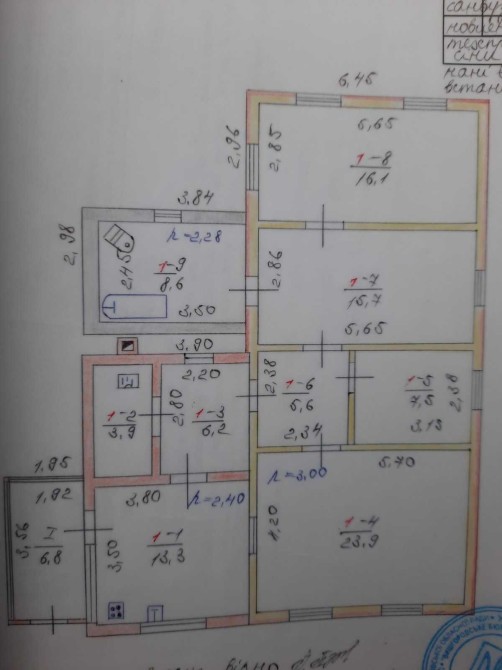 санву
новлен
нані в
встано
6,45
5,65
2,96
2,85
1-8
16,1
3,84
2,98
h=2,28
2,45
1-9
8,6
3,50
2,86
1-7
15,7
5,65
3,90
2,20
2,38
1-6
5,6
2,34
1-5
7,5
2,38
3,13
1-2
3,9
2,80
1-3
6,2
1,95
1,92
3,56
I
6,8
3,80
h=2,40
3,50
1-1
13,3
h=3,00
5,70
4,20
1-4
23,9